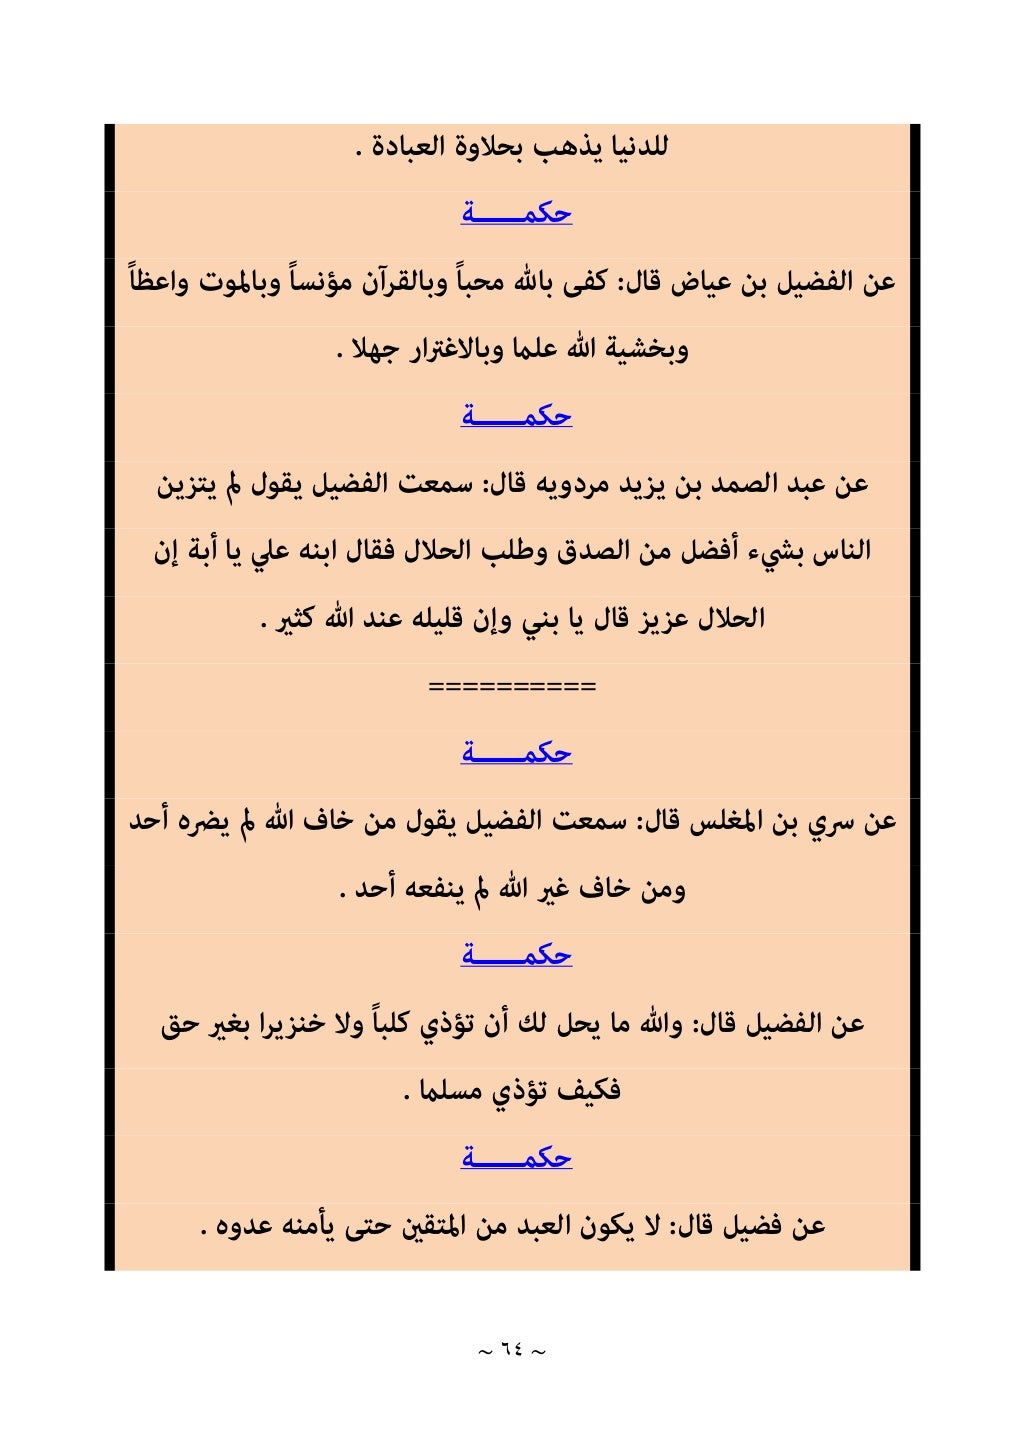 للدنيا يذهب بحلاوة العبادة .
حكمـــــــة
عن الفضيل بن عياض قال: كفى بالله محباً وبالقرآن مؤنساً وبالموت واعظاً
وبخشية الله علما وبالاغترار جهلا .
حكمـــــــة
عن عبد الصمد بن يزيد مردويه قال: سمعت الفضيل يقول لم يتزين
الناس بشيء أفضل من الصدق وطلب الحلال فقال ابنه علي يا أبة إن
الحلال عزيز قال يا بني وإن قليله عند الله كثير .
==========
حكمـــــــة
عن سري بن المغلس قال: سمعت الفضيل يقول من خاف الله لم يضره أحد
ومن خاف غير الله لم ينفعه أحد .
حكمـــــــة
عن الفضيل قال: والله ما يحل لك أن تؤذي كلباً ولا خنزيرا بغير حق
فكيف تؤذي مسلما .
حكمـــــــة
عن فضيل قال: لا يكون العبد من المتقين حتى يأمنه عدوه .
~ ٦٤ ~